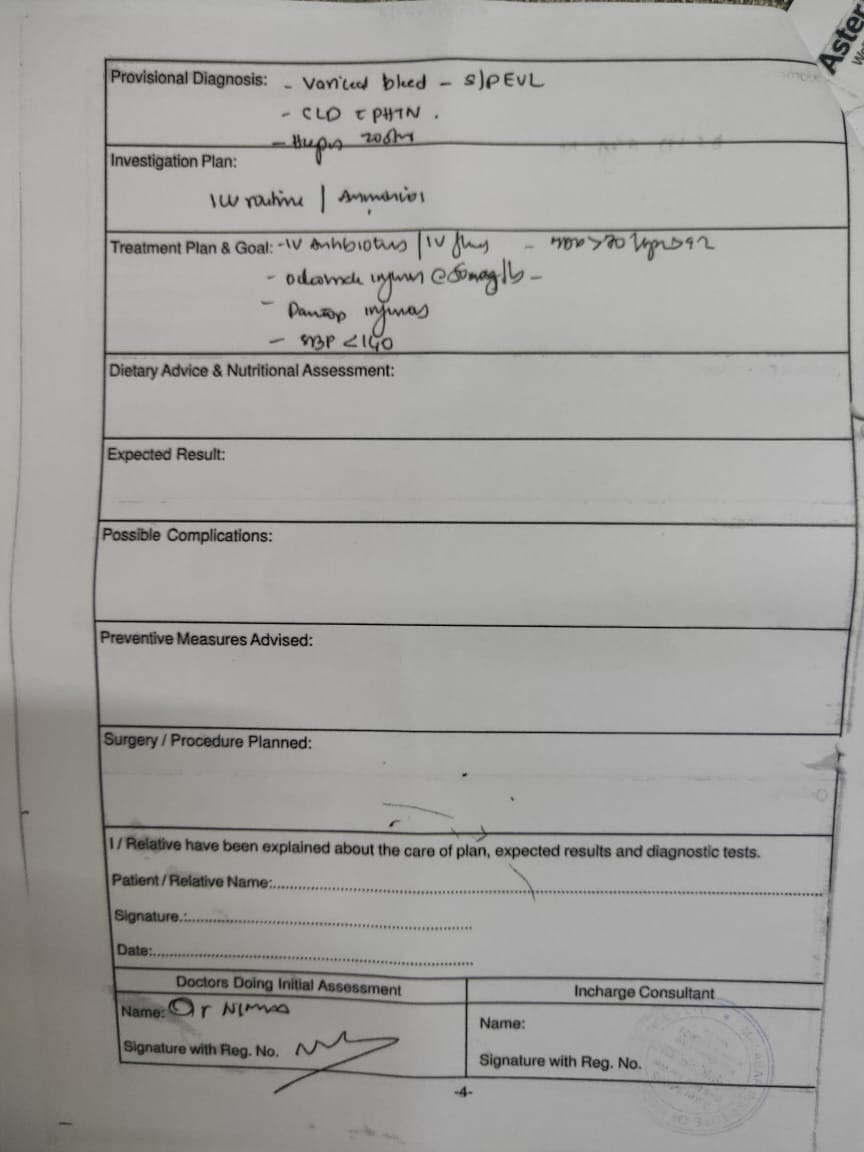 Aster
Provisional Diagnosis: - Variceal bleed - S/P EVL
- CLD c PHTN.
- Herpes zoster
Investigation Plan:
IW routine | Ammonia
Treatment Plan & Goal: - IV Antibiotics | IV
- infusion @ 50
- Pantop infusion
- SBP <140
Dietary Advice & Nutritional Assessment:
Expected Result:
Possible Complications:
Preventive Measures Advised:
Surgery / Procedure Planned:
I / Relative have been explained about the care of plan, expected results and diagnostic tests.
Patient / Relative Name:
Signature.:
Date:
Doctors Doing Initial Assessment
Incharge Consultant
Name: Dr
Name:
Signature with Reg. No.
Signature with Reg. No.
-4-